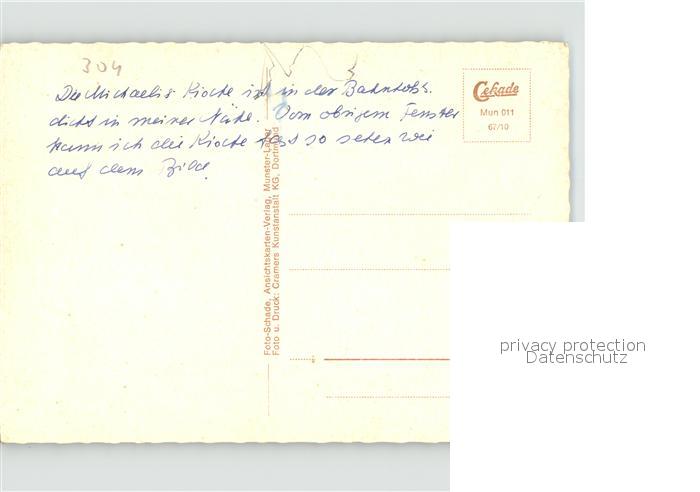 304
Die Michaelis Kirche ist in der Bahnhofstr.
dicht in meiner Nähe. Vom obigem Fenster
kann ich die Kirche fast so sehen wie
auf dem Bild.
Cekade
Mun 011
67/10
Foto-Schade, Ansichtskarten-Verlag, Munster-Lager
Foto u. Druck: Cramers Kunstanstalt KG, Dortmund
privacy protection
Datenschutz